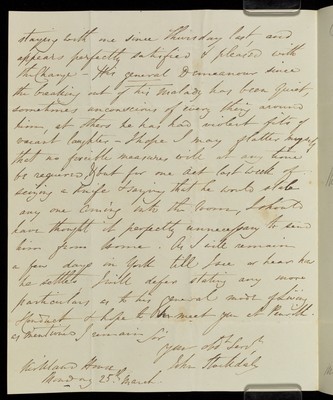 staying with me since Thursday last and
appears perfectly satisfied & pleased with
the Change – His general Demeanour since
the breaking out of his Malady has been Quiet,
sometimes unconscious of every thing around
him, at others he has had violent fits of
vacant laughter – I hope I may flatter myself
that no forcible measures will at any time
be required, & but for one act last week of
seizing a knife & saying that he would stab
any one coming into the Room, I should
have thought it perfectly unnecessary to send
him from home. As I will remain
a few days in York till I see or hear how
he settles I will defer stating any more
particulars as to his general mode of living
Conduct & hope to meet you at
as mentioned I remain Sir
your obt Servt
John Stockdale
House
Monday 25th March